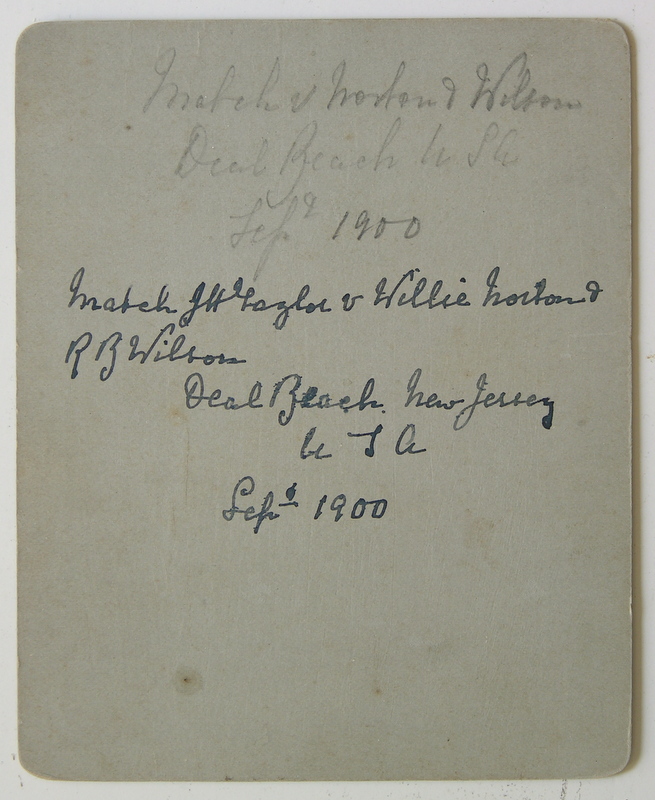 Match v Norton & Wilson
Deal Beach U S A
Sept 1900
Match J H Taylor v Willie Norton &
R B Wilson
Deal Beach. New Jersey
U S A
Sept 1900